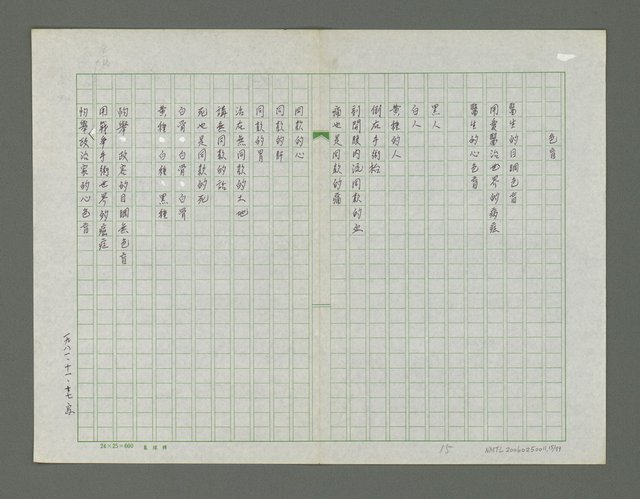 色盲
醫生的目睭色盲
用愛醫治世界的病症
醫生的心色盲
黑人
白人
黃種的人
倒在手術枱
刣開腹內流同款的血
痛也是同款的痛
同款的心
同款的肝
同款的胃
活在無同款的土地
講無同款的話
死也是同款的死
白骨 白骨 白骨
黃種 白種 黑種
政客的目睭無色盲
用戰爭手術世界的癌症
政治家的心色盲
一九八一、十一、十七、
24×25=600
15
NMTL20060250011,15/99